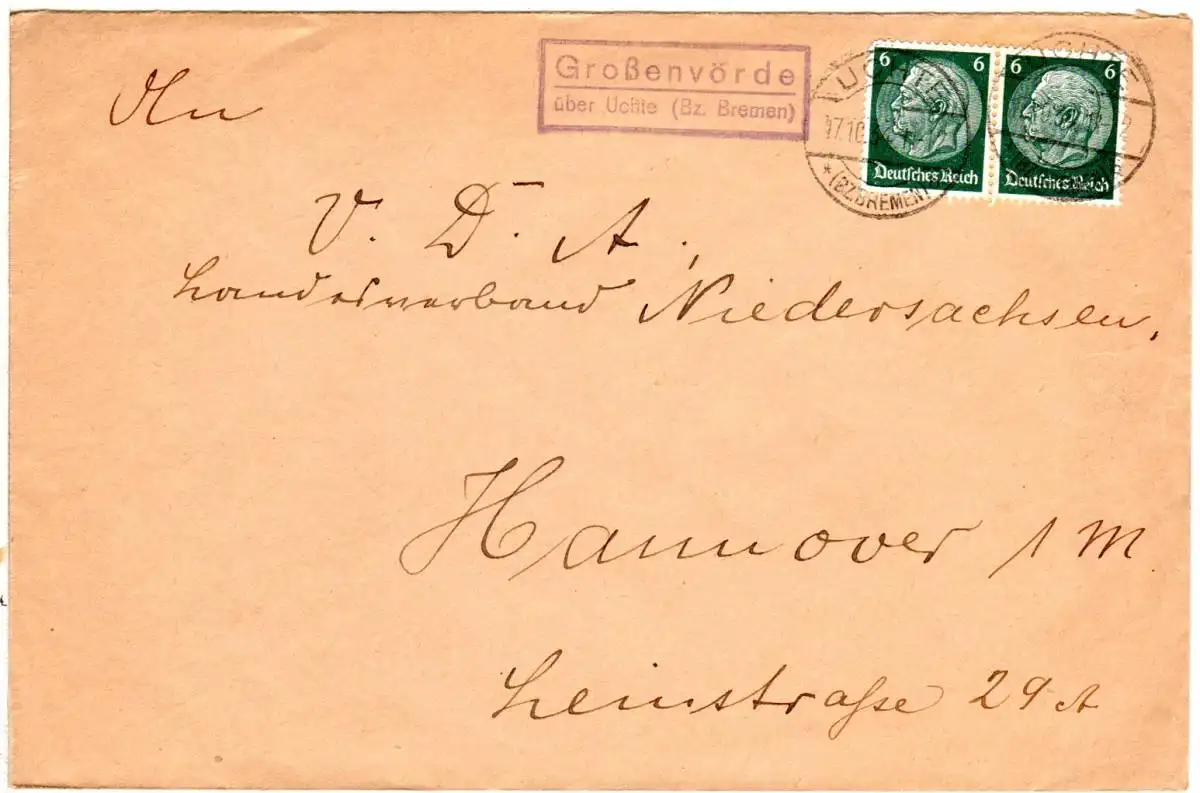 Großenvörde
über Uchte (Bz. Bremen)
UCHTE
17.10.
* (BZ BREMEN)
UCHTE
6
Deutsches Reich
6 6
Deutsches Reich
An
V. D. A.,
Landesverband Niedersachsen,
Hannover 1 M
Leinstraße 29 A